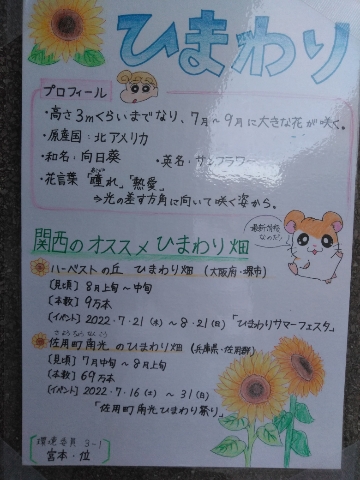 ひまわり
プロフィール
・高さ3mくらいまでなり、7月～9月に大きな花が咲く。
・原産国：北アメリカ
・和名：向日葵 ・英名：サンフラワー
・花言葉「憧れ」「熱愛」
⇒光の差す方角に向いて咲く姿から。
関西のオススメひまわり畑
最新情報なのだ！
ハーベストの丘 ひまわり畑（大阪府・堺市）
〔見頃〕8月上旬～中旬
〔本数〕9万本
〔イベント〕2022・7・21（木）～8・21（日）「ひまわりサマーフェスタ」
佐用町南光のひまわり畑（兵庫県・佐用郡）
〔見頃〕7月中旬～8月上旬
〔本数〕69万本
〔イベント〕2022・7・16（土）～31（日）
「佐用町南光ひまわり祭り」
環境委員 3-1
宮本・位